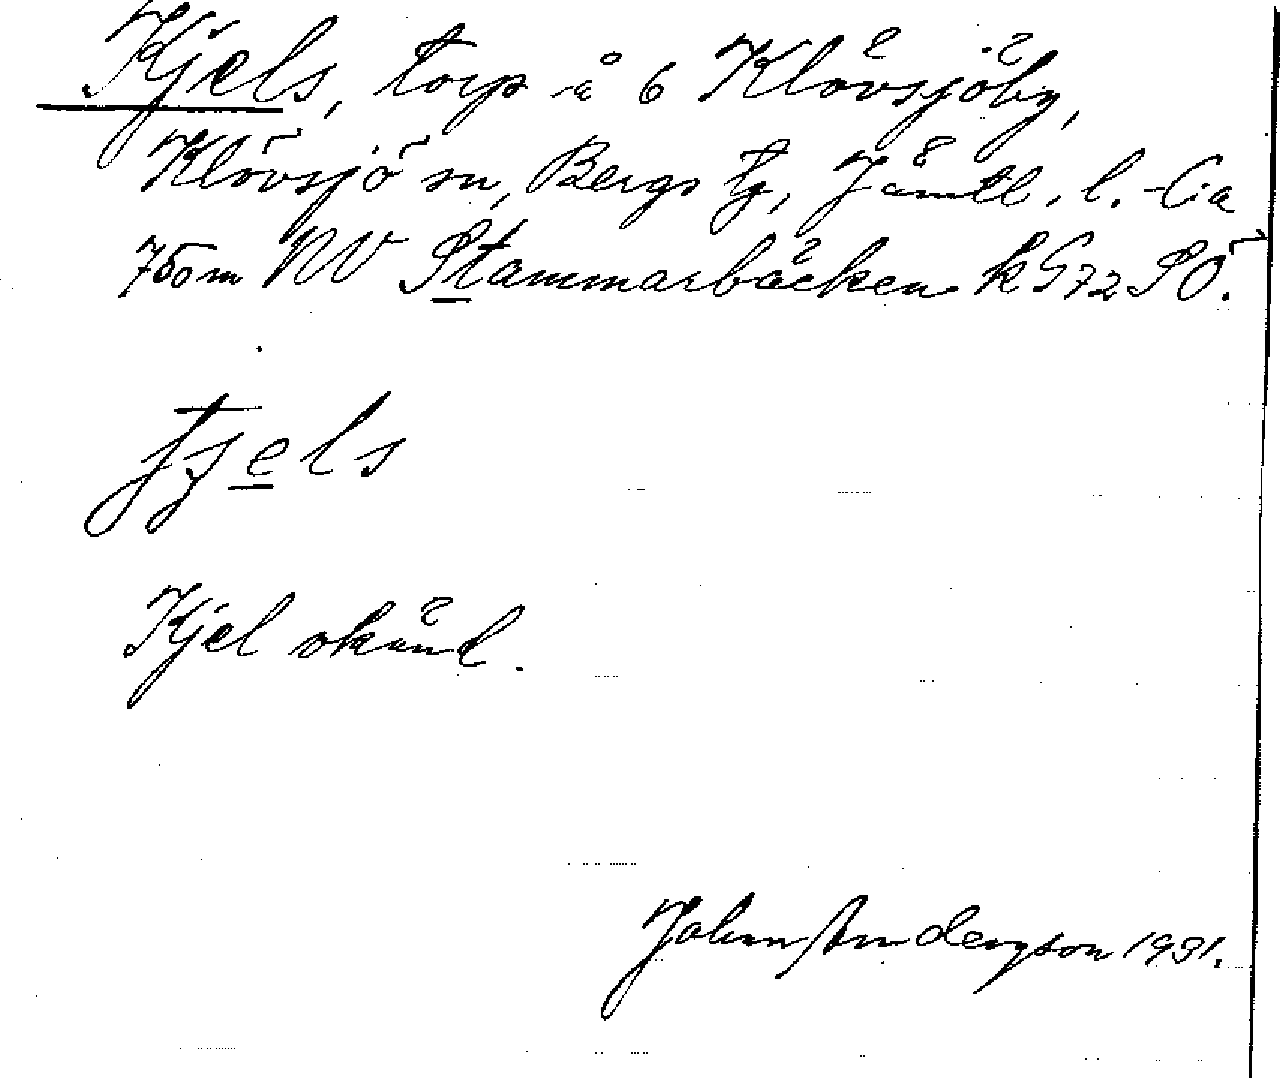 Kjels, torp å 6 Klövsjöby,
Klövsjö sn, Bergs tg, Jämtl. l. Ca
750 m NV Stammarbäcken k G72 SÖ.
Kjel okänd.
John Anderson 1931.